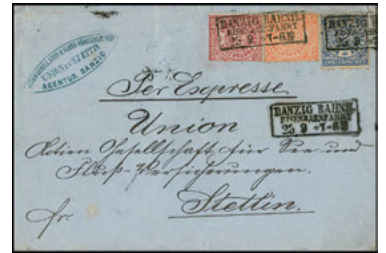 UNION in STETTIN
AGENTUR DANZIG
DANZIG BAHNH.
25 9 7-8N
DANZIG BAHNH.
Per Expresse
DANZIG BAHNH.
25 9 7-8N
Union
Actien Gesellschaft für See und
Fluss-Versicherungen.
fr.
Stettin.